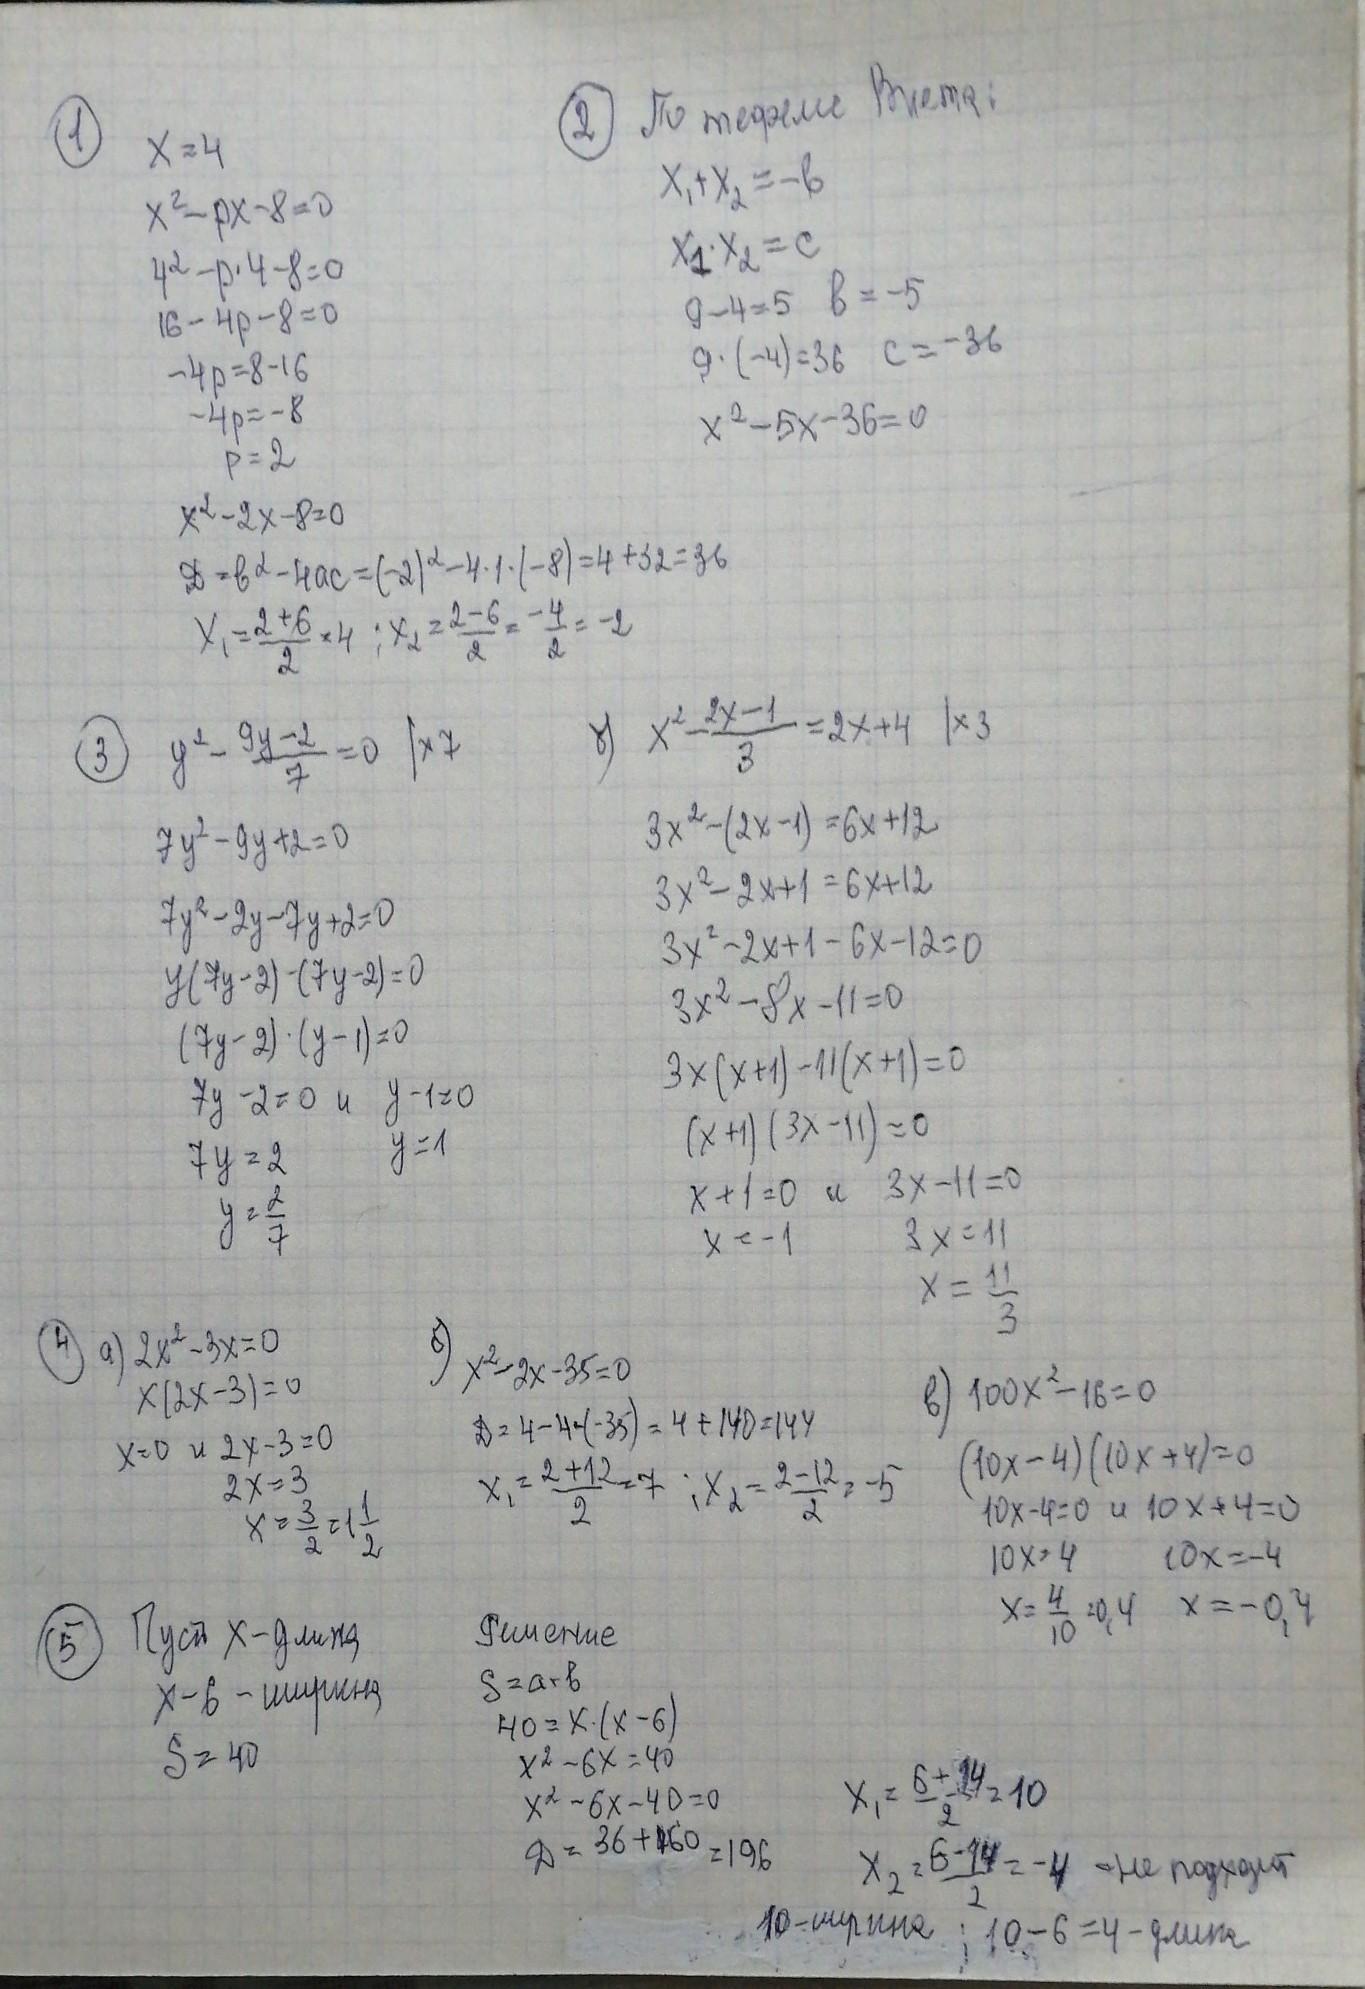 1
x=4
x²-px-8=0
4²-p·4-8=0
16-4p-8=0
-4p=8-16
-4p=-8
p=2
x²-2x-8=0
D=b²-4ac=(-2)²-4·1·(-8)=4+32=36
x₁=(2+6)/2=4 ; x₂=(2-6)/2=-4/2=-2
2 По теореме Виета:
x₁+x₂=-b
x₁·x₂=c
9-4=5 b=-5
9·(-4)=36 c=-36
x²-5x-36=0
3
y²-(9y-2)/7=0 |×7
7y²-9y+2=0
7y²-2y-7y+2=0
y(7y-2)-(7y-2)=0
(7y-2)·(y-1)=0
7y-2=0 и y-1=0
7y=2 y=1
y=2/7
б) x²-(2x-1)/3=2x+4 |×3
3x²-(2x-1)=6x+12
3x²-2x+1=6x+12
3x²-2x+1-6x-12=0
3x²-8x-11=0
3x(x+1)-11(x+1)=0
(x+1)(3x-11)=0
x+1=0 и 3x-11=0
x=-1 3x=11
x=11/3
4 а) 2x²-3x=0
x(2x-3)=0
x=0 и 2x-3=0
2x=3
x=3/2=1 1/2
б) x²-2x-35=0
D=4-4·(-35)=4+140=144
x₁=(2+12)/2=7 ; x₂=(2-12)/2=-5
в) 100x²-16=0
(10x-4)(10x+4)=0
10x-4=0 и 10x+4=0
10x=4 10x=-4
x=4/10=0,4 x=-0,4
5 Пусть x-длина
x-6-ширина
S=40
Решение
S=a·b
40=x·(x-6)
x²-6x=40
x²-6x-40=0
D=36+160=196
x₁=(6+14)/2=10
x₂=(6-14)/2=-4 -не подходит
10-ширина ; 10-6=4-длина